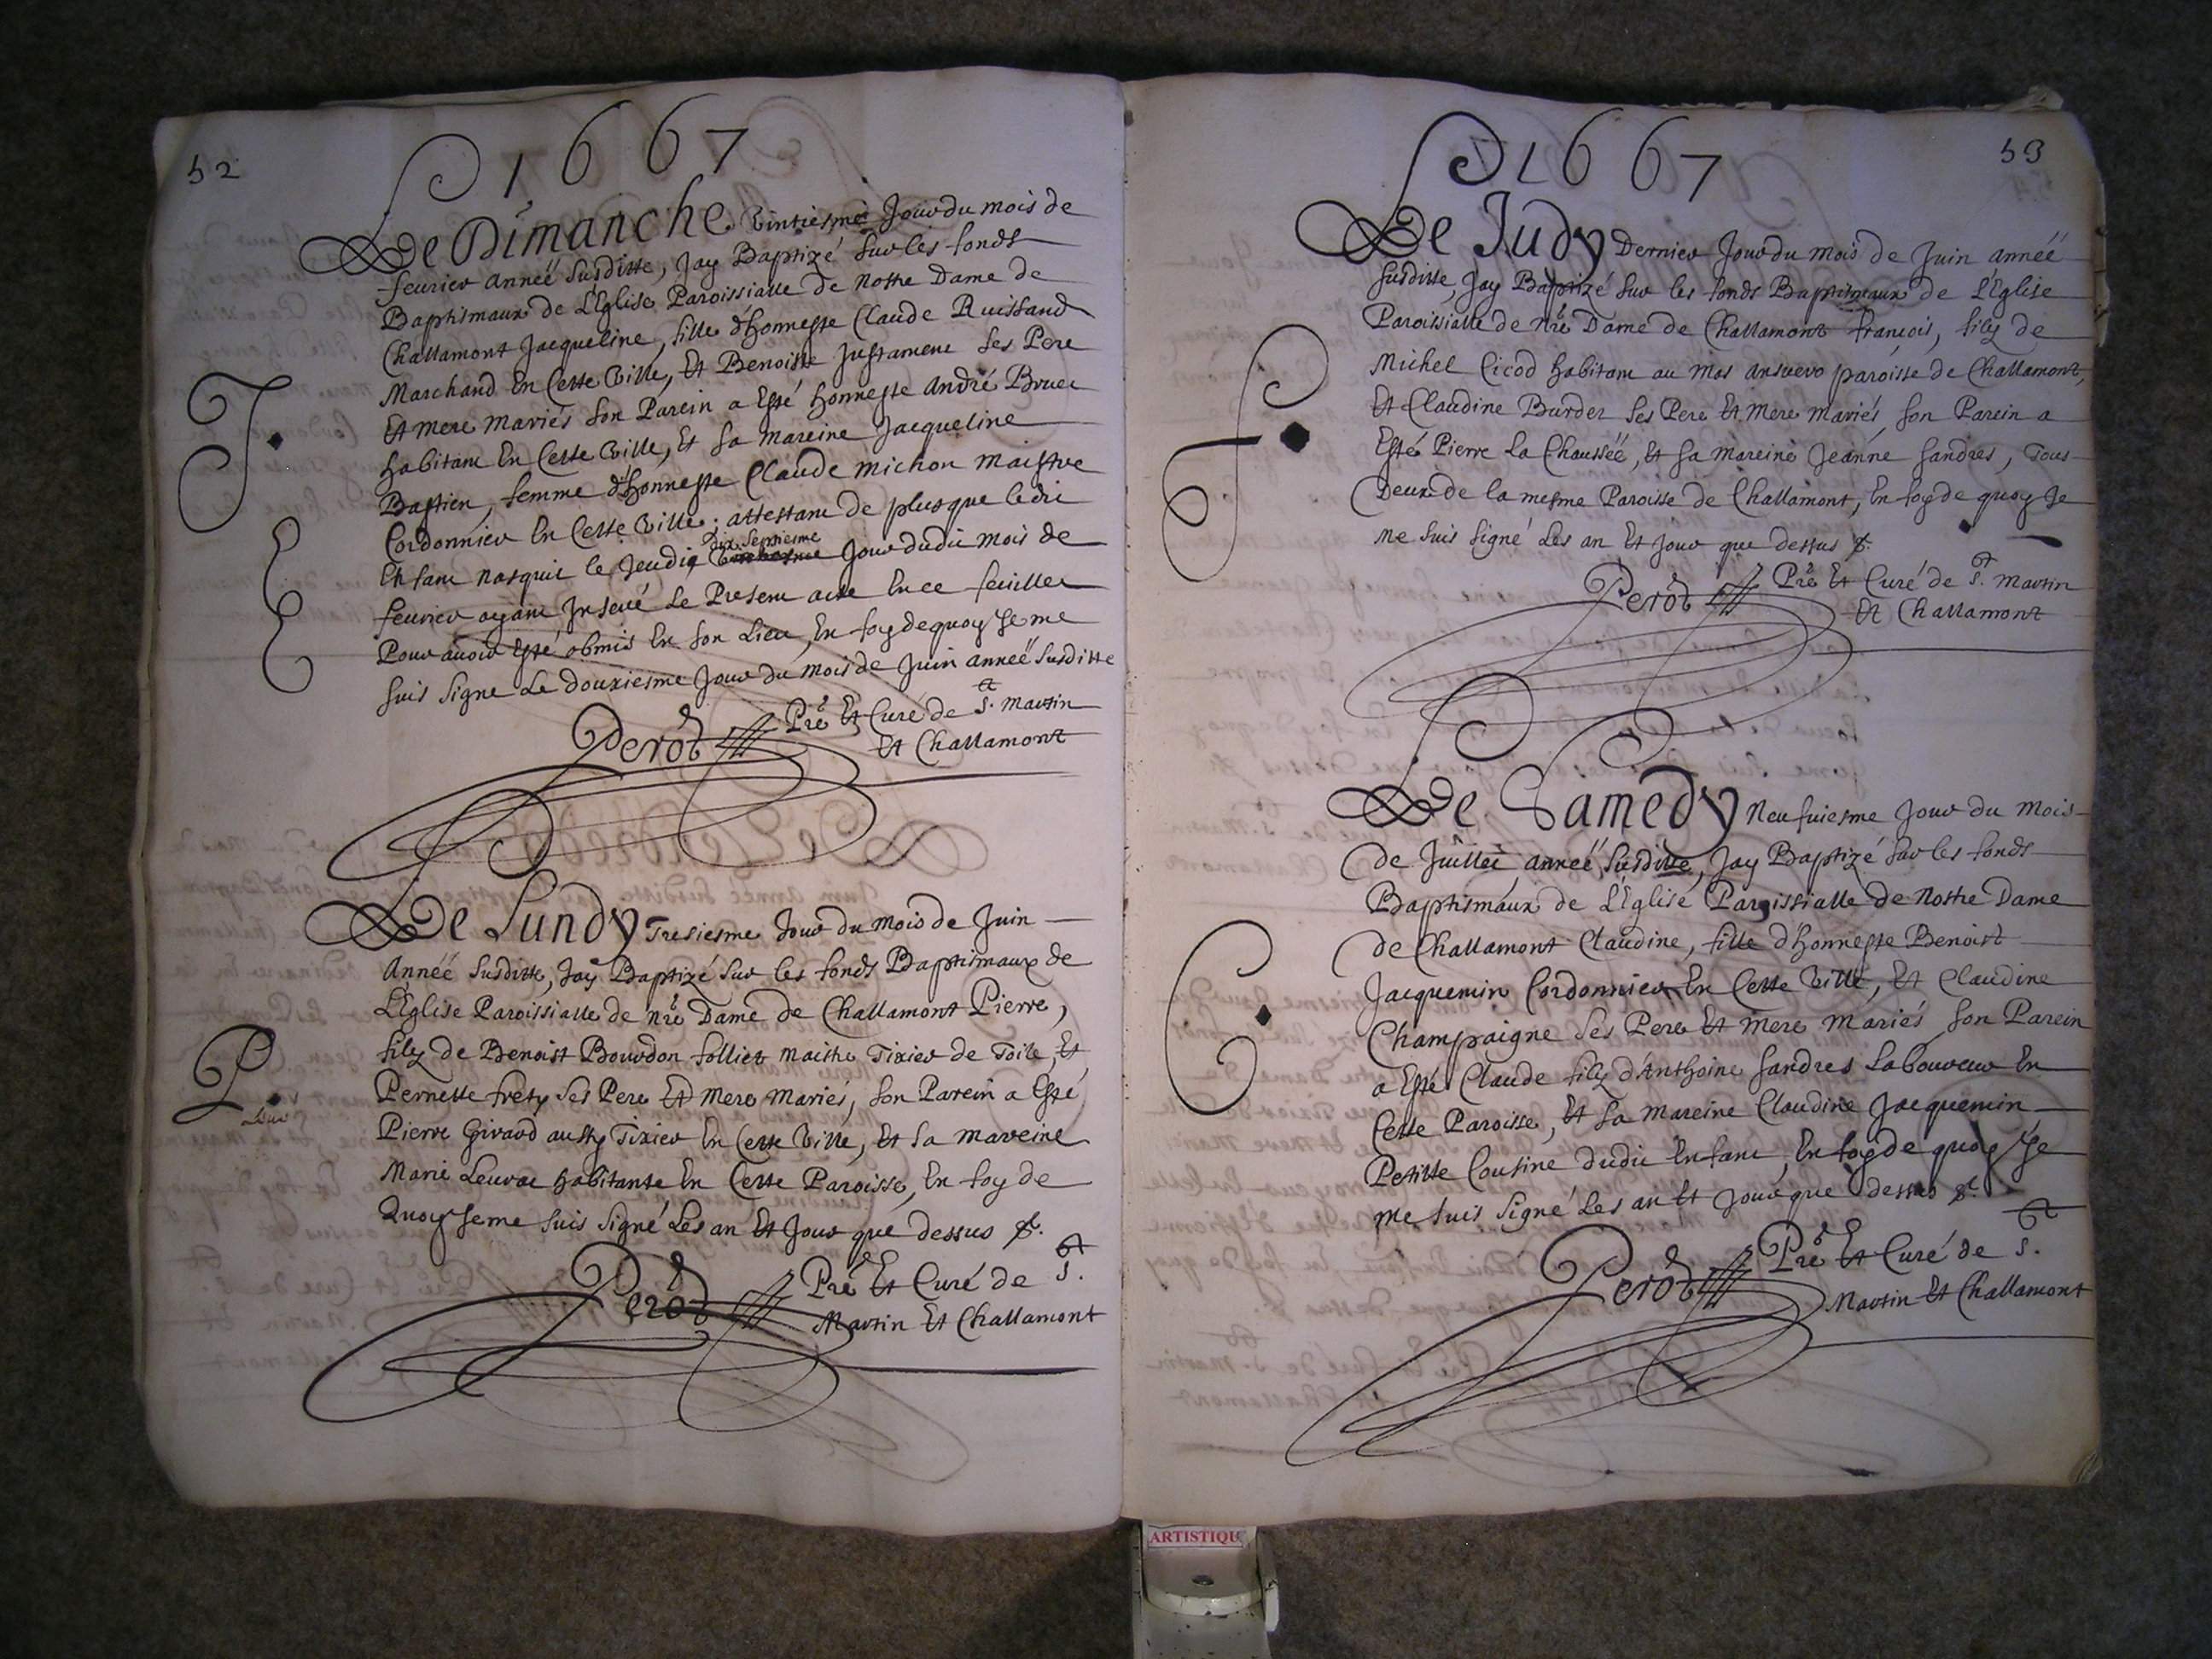 52
1667
De Dimanche vintiesme Jour du mois de
feurier anneë susditte, Jay Baptizé sur les fonds
Baptismaux de L'Eglise Paroissialle de Nostre Dame de
Challamont Jacqueline, fille d'honneste Claude Ruissand
Marchand En Cette Ville, Et Benoiste Justament ses Pere
Et mere mariés son Parein a Esté honneste André Bruec
habitant En Cette Ville, Et sa mareine Jacqueline
Bastien, femme d'honneste Claude michon maistre
Cordonnier En Cette Ville; attestant de plus que ledit
Enfant nasquit le Jeudi dix septiesme Jour dudit mois de
feurier ayant Inseré Le Present acte En ce feuillet
Pour auoir Esté obmis En son Lieu, En foy de quoy Je me
suis signé Le douziesme Jour du mois de Juin anneë susditte
Perod Pre Et Curé de St. Martin
Et Challamont
J.
De Lundy Tresiesme Jour du mois de Juin
Anneë susditte, Jay Baptizé sur les fonds Baptismaux de
L'Eglise Paroissialle de nre Dame de Challamont Pierre,
filz de Benoist Bourdon folliet maistre Tixier de Toile, Et
Pernette frety ses Pere Et Mere Mariés, son Parein a Esté
Pierre Girard aussy Tixier En Cette Ville, Et sa mareine
Marie Leurat habitante En Cette Paroisse, En foy de
Quoy Je me suis signé Les an Et Jour que dessus &.
Perod Pre Et Curé de St.
Martin Et Challamont
P.
53
1667
De Judy Dernier Jour du mois de Juin anneë
susditte, Jay Baptizé sur les fonds Baptismaux de L'Eglise
Paroissialle de nre Dame de Challamont françois, filz de
Michel Cicod habitant au mas paroisse de Challamont,
Et Claudine Burdet ses Pere Et mere mariés, son Parein a
Esté Pierre La Chausseë, Et sa mareine Jeanne sandres, Tous
Deux de la mesme Paroisse de Challamont, En foy de quoy Je
me suis signé Les an Et Jour que dessus &.
Perod Pre Et Curé de St. Martin
Et Challamont
f.
De Samedy Neufuiesme Jour du mois
de Juillet anneë susditte, Jay Baptizé sur les fonds
Baptismaux de L'Eglise Paroissialle de Nostre Dame
de Challamont Claudine, fille d'honneste Benoist
Jacquemin Cordonnier En Cette Ville, Et Claudine
Champaigne ses Pere Et mere mariés son Parein
a Esté Claude filz d'Anthoine sandres Laboureur En
Cette Paroisse, Et sa mareine Claudine Jacquemin
Petitte Cousine dudit Enfant, En foy de quoy Je
me suis signé Les an Et Jour que dessus &.
Perod Pre Et Curé de St.
Martin Et Challamont
C.
ARTISTIQU